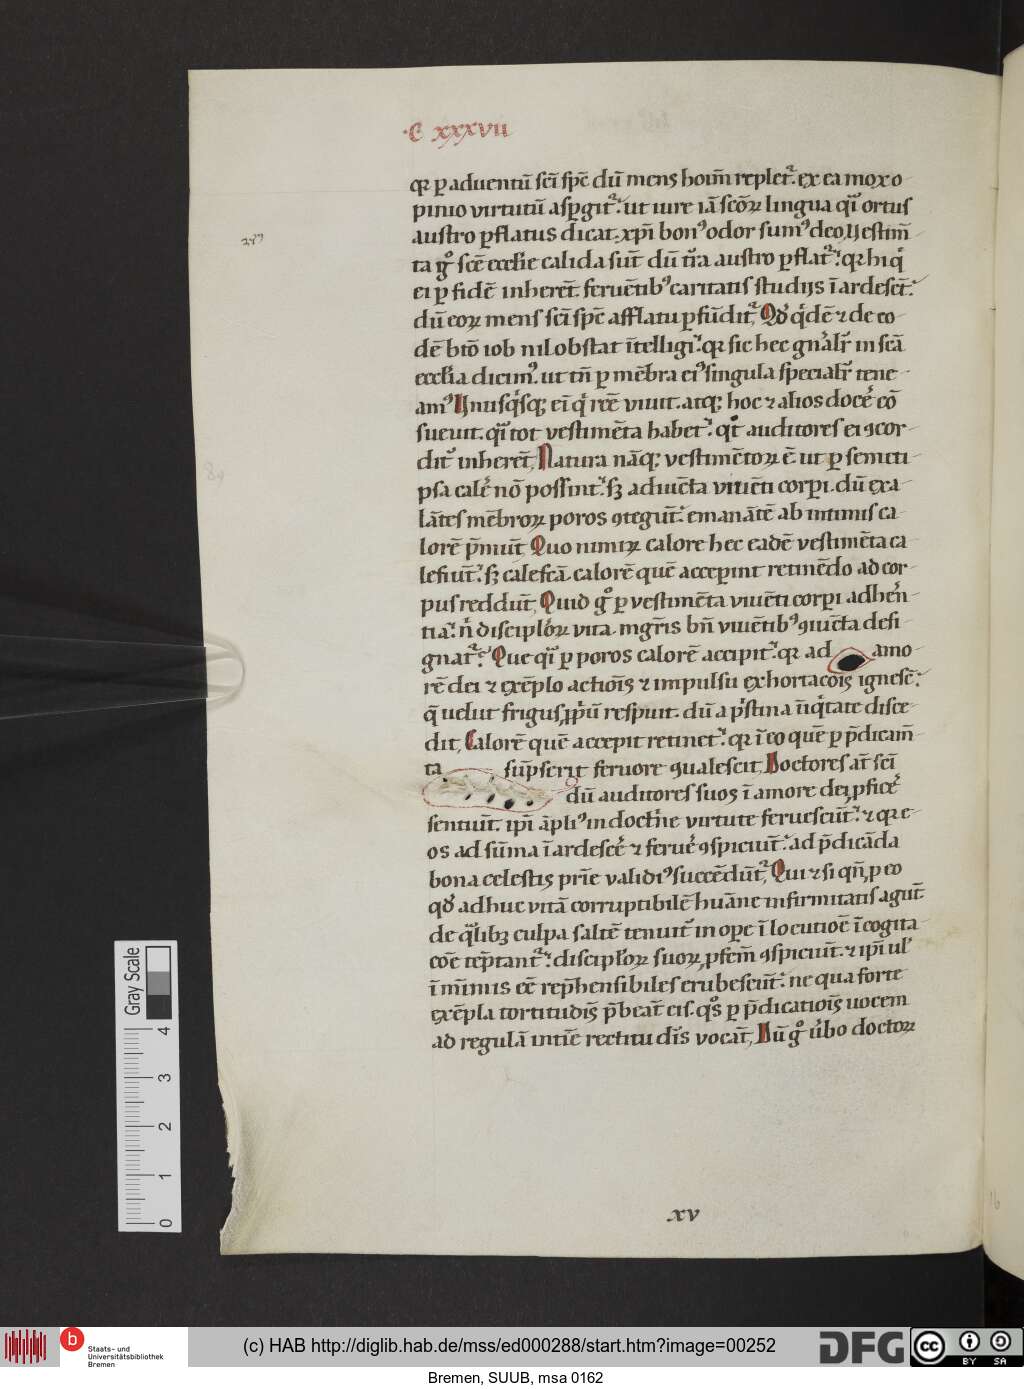 ·C xxxvii
qꝛ ꝑ aduentū sc̄i sp̄c dū mens hoīm replet᷑. ex ea mox o
pinio virtutū asꝑgit᷑. ut iure iā scōꝝ lingua qͥ ortus
austro ꝑflatus dicat. xp̄i bonꝰ odor sumꝰ deo. Uestim̄
ta gͦ sc̄e eccl̄ie calida sūt dū t̄ra austro ꝑflat᷑. qꝛ hi qͥ
ei ꝑ fidē inherēt. feruētibꝰ caritatis studijs īardescēt.
dū eoꝝ mens sc̄i sp̄c afflatu ꝑfūdit᷑. Qd̓ qͥdē ⁊ de eo
dē btō iob nil obstat ītelligi. qꝛ sic hec gn̄alr̄ in scā
eccl̄ia dicimꝰ. ut tn̄ ꝑ mēbra eiꝰ singula specialr̄ tene
amꝰ Unusqͥsqꝫ eī qͥ rc̄e viuit. atqꝫ hoc ⁊ alios docē cō
sueuit. qͥ tot vestimēta habet. qͦt auditores ei ꝯcor
dit̓ inherēt. Natura nāqꝫ vestimētoꝝ ē ut ꝑ semeti
psa calē nō possint. sꝫ adiūcta viuēti corpi. dū exa
lātes mēbroꝝ poros ꝯtegūt. emanātē ab intimis ca
lorē p̄mūt. Quo nimiꝝ calore hec eadē vestimēta ca
lefiūt. sꝫ calefcā calorē quē acceperint retinēdo ad cor
pus reddūt. Quid gͦ ꝑ vestimēta viuēti corpi adherē
tia. nͥ disciploꝝ vita. mgr̄is bn̄ viuētibꝰ ꝯiūcta desi
gnat᷑. Que qͥ ꝑ poros calorē accipit. qꝛ ad amo
rē dei ⁊ exēplo actiōis ⁊ impulsu exhortacōis ignescē.
q̄ uelut frigus ꝓpͥū respuit. dū a pͥstina īiqͥtate disce
dit. Calorē quē accepit retinet. qꝛ ī eo quē ꝑ p̄dicam̄
ta sūpserit feruore ꝯualescit. Doctores at̄ sc̄i
dū auditores suos ī amore dei ꝓficē
sentiūt. ip̄i āpliꝰ in doct̓ne virtute feruescūt. ⁊ qꝛ e
os ad sūma īardescē ⁊ feruē ꝯspiciūt. ad p̄dicāda
bona celestis pr̄ie validiꝰ succēdūt᷑. Qui ⁊ si qn̄ ꝓ eo
qd̓ adhuc vitā corruptibilē huāne infirmitatis agūt
de qͣlibꝫ culpa saltē tenuit̓ in oꝑe ī locutiōe ī cogita
cōe tēptant᷑. disciploꝝ suoꝝ ꝓfc̄m ꝯspiciūt. ⁊ ip̄i ul̓
ī mīmis eē rep̄hensibiles erubescūt. ne qua forte
exēpla tortitudis p̄beāt eis. qͦs ꝑ p̄dicatiōis uocem
ad regulā int̄ie rectitudīs vocāt. Dū gͦ ūbo doctoꝝ
xv
Gray Scale
4
3
2
1
0
b Staats- und
Universitätsbibliothek
Bremen
(c) HAB http://diglib.hab.de/mss/ed000288/start.htm?image=00252
DFG
cc BY SA
Bremen, SUUB, msa 0162